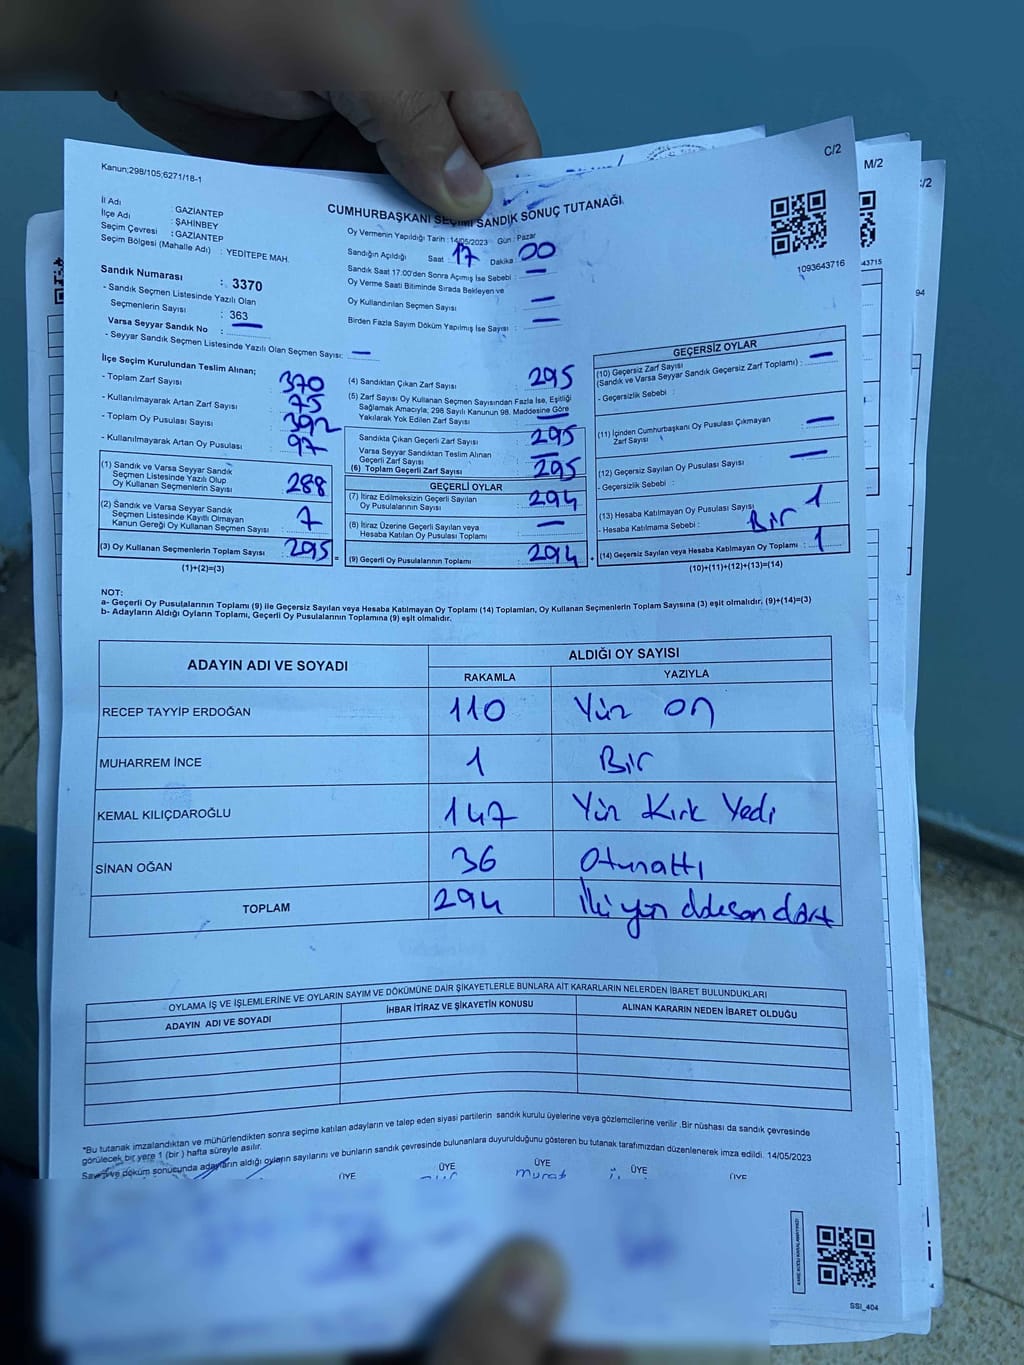 C/2
M/2
:/2
Kanun;298/105;6271/18-1
CUMHURBAŞKANI SEÇİMİ SANDIK SONUÇ TUTANAĞI
1093643716
43715
94
İl Adı : GAZİANTEP
İlçe Adı : ŞAHİNBEY
Seçim Çevresi : GAZİANTEP
Seçim Bölgesi (Mahalle Adı) : YEDİTEPE MAH.
Sandık Numarası : 3370
- Sandık Seçmen Listesinde Yazılı Olan
Seçmenlerin Sayısı : 363
Varsa Seyyar Sandık No : —
- Seyyar Sandık Seçmen Listesinde Yazılı Olan Seçmen Sayısı: —
Oy Vermenin Yapıldığı Tarih : 14/05/2023 Gün : Pazar
Sandığın Açıldığı Saat : 17 Dakika : 00
Sandık Saat 17:00'den Sonra Açımış İse Sebebi : —
Oy Verme Saati Bitiminde Sırada Bekleyen ve
Oy Kullandırılan Seçmen Sayısı : —
Birden Fazla Sayım Döküm Yapılmış İse Sayısı : —
İlçe Seçim Kurulundan Teslim Alınan;
- Toplam Zarf Sayısı : 370
- Kullanılmayarak Artan Zarf Sayısı : 75
- Toplam Oy Pusulası Sayısı : 392
- Kullanılmayarak Artan Oy Pusulası : 97
(1) Sandık ve Varsa Seyyar Sandık
Seçmen Listesinde Yazılı Olup
Oy Kullanan Seçmenlerin Sayısı : 288
(2) Sandık ve Varsa Seyyar Sandık
Seçmen Listesinde Kayıtlı Olmayan
Kanun Gereği Oy Kullanan Seçmen Sayısı : 7
(3) Oy Kullanan Seçmenlerin Toplam Sayısı : 295 =
(1)+(2)=(3)
(4) Sandıktan Çıkan Zarf Sayısı : 295
(5) Zarf Sayısı Oy Kullanan Seçmen Sayısından Fazla İse, Eşitliği
Sağlamak Amacıyla; 298 Sayılı Kanunun 98. Maddesine Göre
Yakılarak Yok Edilen Zarf Sayısı : —
Sandıkta Çıkan Geçerli Zarf Sayısı : 295
Varsa Seyyar Sandıktan Teslim Alınan
Geçerli Zarf Sayısı : —
(6) Toplam Geçerli Zarf Sayısı : 295
GEÇERLİ OYLAR
(7) İtiraz Edilmeksizin Geçerli Sayılan
Oy Pusulalarının Sayısı : 294
(8) İtiraz Üzerine Geçerli Sayılan veya
Hesaba Katılan Oy Pusulası Toplamı : —
(9) Geçerli Oy Pusulalarının Toplamı : 294 +
GEÇERSİZ OYLAR
(10) Geçersiz Zarf Sayısı
(Sandık ve Varsa Seyyar Sandık Geçersiz Zarf Toplamı) : —
- Geçersizlik Sebebi :
(11) İçinden Cumhurbaşkanı Oy Pusulası Çıkmayan
Zarf Sayısı : —
(12) Geçersiz Sayılan Oy Pusulası Sayısı : —
- Geçersizlik Sebebi :
(13) Hesaba Katılmayan Oy Pusulası Sayısı : 1
- Hesaba Katılmama Sebebi : Bir
(14) Geçersiz Sayılan veya Hesaba Katılmayan Oy Toplamı : 1
(10)+(11)+(12)+(13)=(14)
NOT:
a- Geçerli Oy Pusulalarının Toplamı (9) ile Geçersiz Sayılan veya Hesaba Katılmayan Oy Toplamı (14) Toplamları, Oy Kullanan Seçmenlerin Toplam Sayısına (3) eşit olmalıdır. (9)+(14)=(3)
b- Adayların Aldığı Oyların Toplamı, Geçerli Oy Pusulalarının Toplamına (9) eşit olmalıdır.
ADAYIN ADI VE SOYADI
ALDIĞI OY SAYISI
RAKAMLA YAZIYLA
RECEP TAYYİP ERDOĞAN 110 Yüz on
MUHARREM İNCE 1 Bir
KEMAL KILIÇDAROĞLU 147 Yüz Kırk Yedi
SİNAN OĞAN 36 Otuzaltı
TOPLAM 294 İki yüz doksan dört
OYLAMA İŞ VE İŞLEMLERİNE VE OYLARIN SAYIM VE DÖKÜMÜNE DAİR ŞİKAYETLERLE BUNLARA AİT KARARLARIN NELERDEN İBARET BULUNDUKLARI
ADAYIN ADI VE SOYADI İHBAR İTİRAZ VE ŞİKAYETİN KONUSU ALINAN KARARIN NEDEN İBARET OLDUĞU
*Bu tutanak imzalandıktan ve mühürlendikten sonra seçime katılan adayların ve talep eden siyasi partilerin sandık kurulu üyelerine veya gözlemcilerine verilir. Bir nüshası da sandık çevresinde
görülecek bir yere 1 (bir ) hafta süreyle asılır.
Sayım ve döküm sonucunda adayların aldığı oyların sayılarını ve bunların sandık çevresinde bulunanlara duyurulduğunu gösteren bu tutanak tarafımızdan düzenlenerek imza edildi. 14/05/2023
ÜYE ÜYE ÜYE ÜYE ÜYE
murat
SSI_404